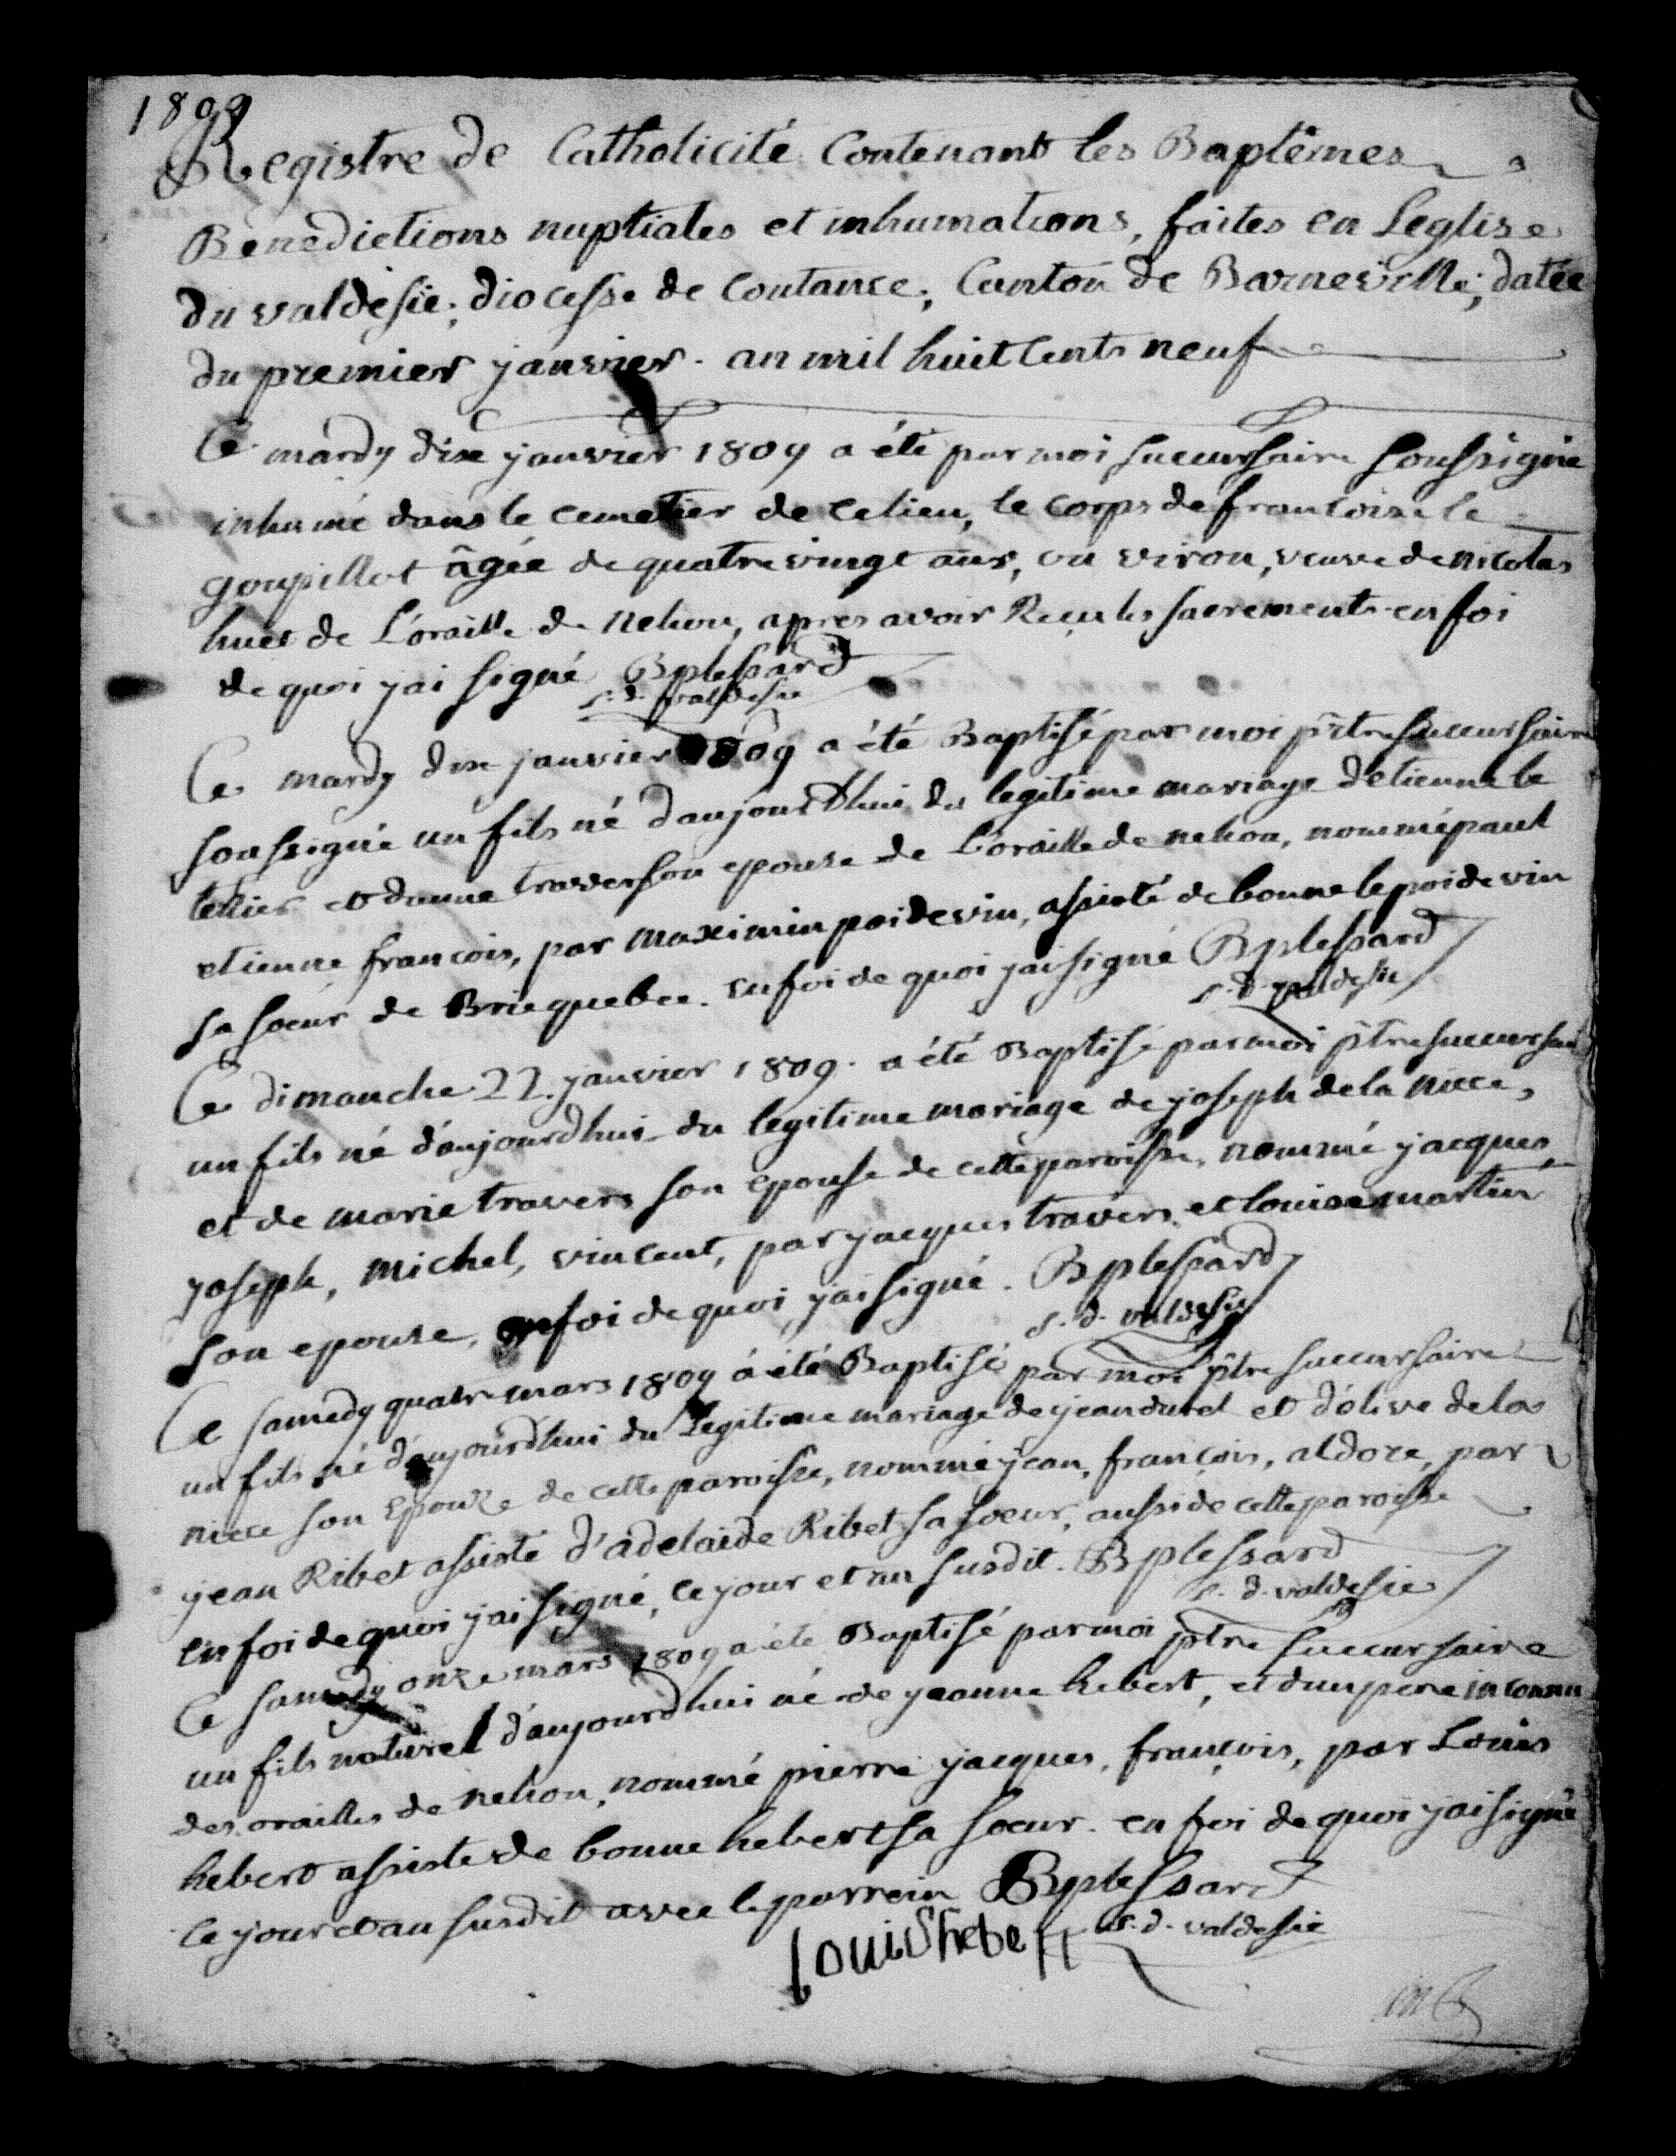 1809
Registre de Catholicité Contenant les Baptêmes
Bénédictions nuptiales et inhumations, faites en Leglise
du valdesie; diocesse de Coutance; Canton de Barneville; datée
du premier janvier. an mil huit Cents neuf
Ce mardy dix janvier 1809 a été par moi succursaire soussigné
inhumé dans le cemetier de celieu, le corps de francoise le
goupillot âgée de quatre vingt ans, ou viron, veuve de nicolas
huet de L'oraille de nehou, apres avoir Reçu les sacrements en foi
de quoi j'ai signé Bplessard
s. d. valdesie
Ce mardy dix janvier 1809 a été Baptisé par moi ptre succursaire
soussigné un fils né d'aujourdhui du legitime mariage detienne le
tellier et danne travers son epouse de L'oraille de nehou, nommé paul
etienne francois, par maximin poidevin, assisté de bonne lepoidevin
sa soeur de Briequebec. en foi de quoi jai signé Bplessard
s. d. valdesie
Ce dimanche 22. janvier 1809. a été Baptisé par moi ptre succursaire
un fils né d'aujourdhui du legitime mariage de joseph de la niece,
et de marie travers son epouse de cette paroisse, nommé jacques
joseph, michel, vincent, par jacques travers et louise martin
son epouse, en foi de quoi j'ai signé. Bplessard
s. d. valdesie
Ce samedy quatre mars 1809 a été Baptisé par moi ptre succursaire
un fils né d'aujourdhui du Legitime mariage de jean durel et d'olive de la
niece son Epouze de cette paroisse, nommé jean, françois, aldore, par
jean Ribet assisté d'adelaide Ribet sa soeur, aussi de cette paroisse
en foi de quoi j'ai signé, ce jour et an susdit. Bplessard
s. d. valdesie
Ce samedy onze mars 1809 a été Baptisé par moi ptre succursaire
un fils naturel d'aujourdhui né de jeanne hebert, et dun pere inconnu
des orailles de nehou, nommé pierre jacques, françois, par Louis
hebert assisté de bonne hebert sa soeur. en foi de quoi j'ai signé
ce jour et an susdit avec le parrein Bplessard
Louis heber s. d. valdesie